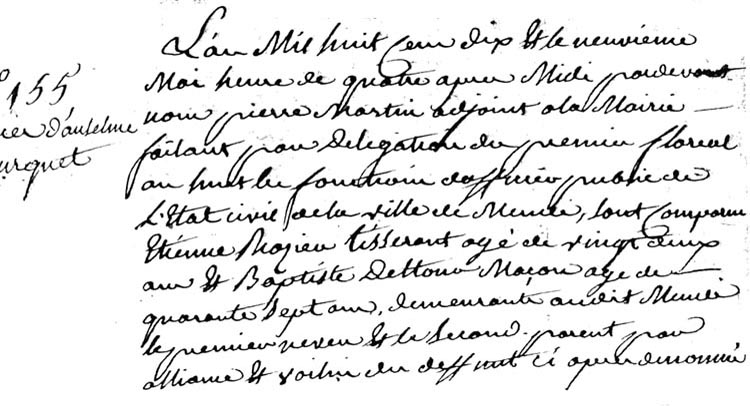 155
d'anselme
L'an Mil huit Cent dix Et le neuvieme
Mai heure de quatre apres Midi pardevant
nous pierre Martin adjoint a la Mairie
faisant par delegation du premier floreal
an huit les fonctions d'officier public de
L'Etat civil de la ville de Mende, sont Comparu
Etienne Rozier tisserant agé de vingt deux
ans Et Baptiste Deltour Maçon age de
quarante Sept ans, demeurants audit Mende
le premier neveu Et le Second parent par
alliance Et voisin du deffunt ci apres denommé